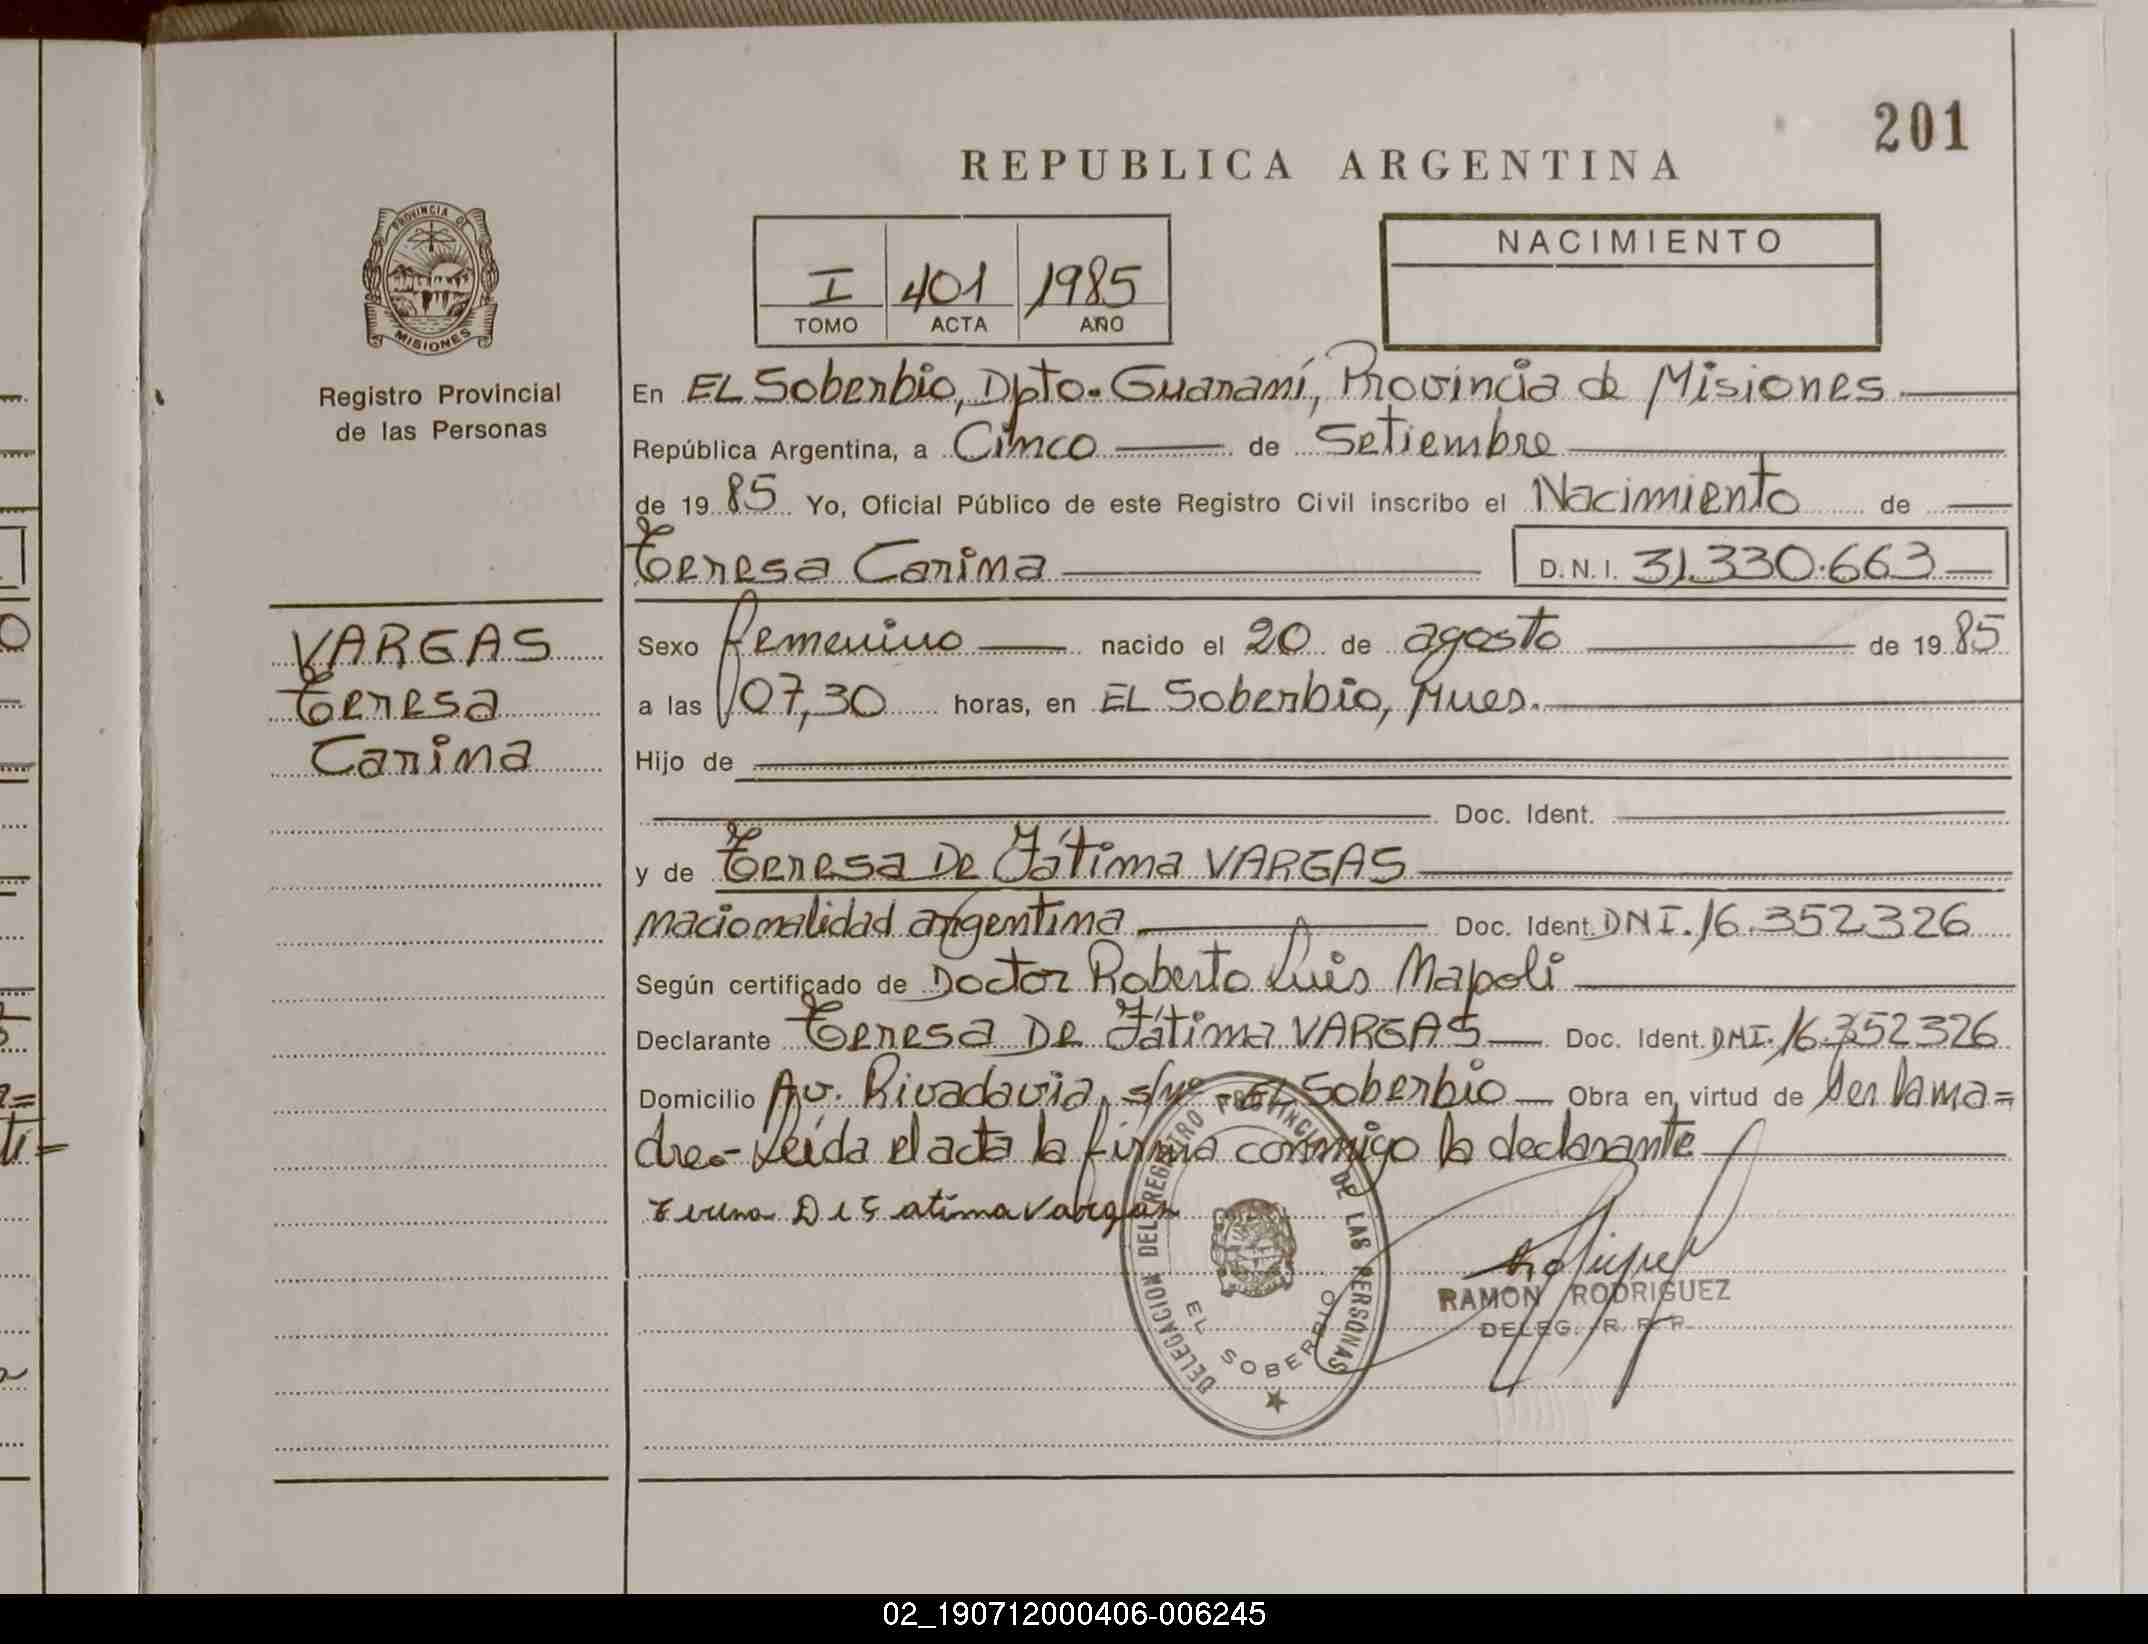 201
REPUBLICA ARGENTINA
PROVINCIA DE
MISIONES
Registro Provincial
de las Personas
I 401 1985
TOMO ACTA AÑO
NACIMIENTO
En EL Soberbio, Dpto. Guaraní, Provincia de Misiones
República Argentina, a Cinco de Setiembre
de 1985 Yo, Oficial Público de este Registro Civil inscribo el Nacimiento de
Teresa Carina D.N.I. 31.330.663
VARGAS
Teresa
Carina
Sexo femenino nacido el 20 de agosto de 1985
a las 07,30 horas, en EL Soberbio, Mnes.
Hijo de
Doc. Ident.
y de Teresa De Fátima VARGAS
nacionalidad argentina Doc. Ident. DNI. 16.352326
Según certificado de Doctor Roberto Luis Napoli
Declarante Teresa De Fátima VARGAS Doc. Ident. DNI. 16.352326
Domicilio Av. Rivadavia, s/nº - EL Soberbio Obra en virtud de ser la ma=
dre.- Leída el acta la firma conmigo la declarante
De Fatima Vargas
DELEGACION DEL REGISTRO PROVINCIAL DE LAS PERSONAS
EL SOBERBIO
RAMON RODRIGUEZ
DELEG. R. P. P.
02_190712000406-006245